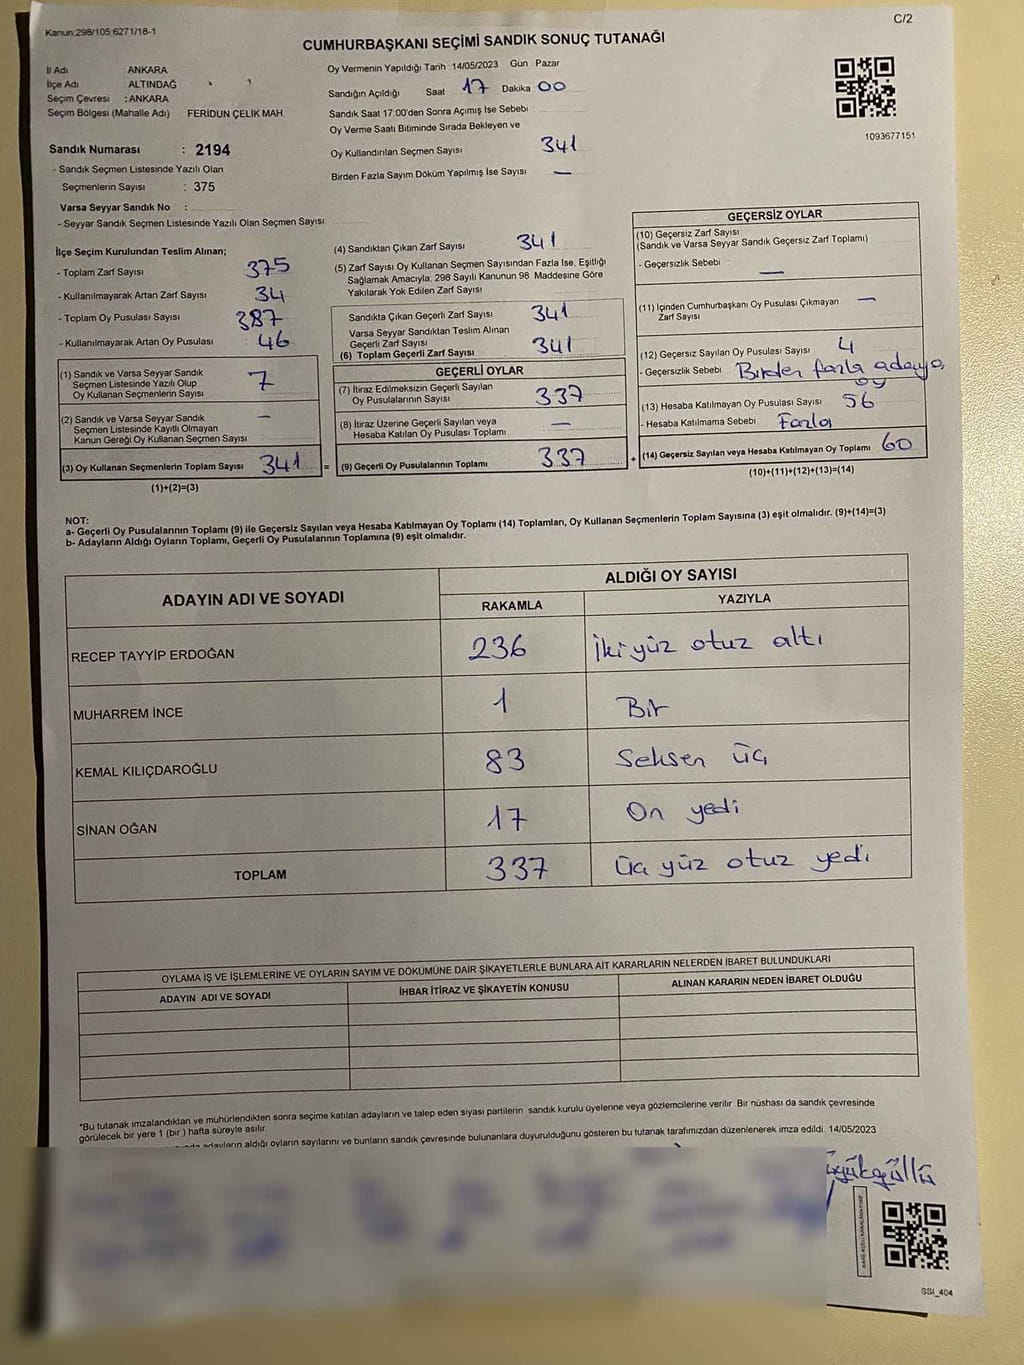 Kanun:298/105;6271/18-1
C/2
CUMHURBAŞKANI SEÇİMİ SANDIK SONUÇ TUTANAĞI
İl Adı ANKARA
İlçe Adı ALTINDAĞ
Seçim Çevresi : ANKARA
Seçim Bölgesi (Mahalle Adı) FERİDUN ÇELİK MAH
Sandık Numarası : 2194
- Sandık Seçmen Listesinde Yazılı Olan
Seçmenlerin Sayısı : 375
Varsa Seyyar Sandık No :
- Seyyar Sandık Seçmen Listesinde Yazılı Olan Seçmen Sayısı
Oy Vermenin Yapıldığı Tarih : 14/05/2023 Gün : Pazar
Sandığın Açıldığı Saat 17 Dakika 00
Sandık Saat 17:00'den Sonra Açımış İse Sebebi
Oy Verme Saati Bitiminde Sırada Bekleyen ve
Oy Kullandırılan Seçmen Sayısı 341
Birden Fazla Sayım Döküm Yapılmış İse Sayısı —
1093677151
İlçe Seçim Kurulundan Teslim Alınan;
- Toplam Zarf Sayısı 375
- Kullanılmayarak Artan Zarf Sayısı 34
- Toplam Oy Pusulası Sayısı 387
- Kullanılmayarak Artan Oy Pusulası : 46
(1) Sandık ve Varsa Seyyar Sandık
Seçmen Listesinde Yazılı Olup
Oy Kullanan Seçmenlerin Sayısı 7
(2) Sandık ve Varsa Seyyar Sandık
Seçmen Listesinde Kayıtlı Olmayan
Kanun Gereği Oy Kullanan Seçmen Sayısı —
(3) Oy Kullanan Seçmenlerin Toplam Sayısı 341 =
(1)+(2)=(3)
(4) Sandıktan Çıkan Zarf Sayısı 341
(5) Zarf Sayısı Oy Kullanan Seçmen Sayısından Fazla İse, Eşitliği
Sağlamak Amacıyla; 298 Sayılı Kanunun 98. Maddesine Göre
Yakılarak Yok Edilen Zarf Sayısı
Sandıkta Çıkan Geçerli Zarf Sayısı 341
Varsa Seyyar Sandıktan Teslim Alınan
Geçerli Zarf Sayısı
(6) Toplam Geçerli Zarf Sayısı 341
GEÇERLİ OYLAR
(7) İtiraz Edilmeksizin Geçerli Sayılan
Oy Pusulalarının Sayısı 337
(8) İtiraz Üzerine Geçerli Sayılan veya
Hesaba Katılan Oy Pusulası Toplamı —
(9) Geçerli Oy Pusulalarının Toplamı 337 +
GEÇERSİZ OYLAR
(10) Geçersiz Zarf Sayısı
(Sandık ve Varsa Seyyar Sandık Geçersiz Zarf Toplamı)
- Geçersizlik Sebebi —
(11) İçinden Cumhurbaşkanı Oy Pusulası Çıkmayan —
Zarf Sayısı
(12) Geçersiz Sayılan Oy Pusulası Sayısı 4
- Geçersizlik Sebebi Birden fazla adaya
oy
(13) Hesaba Katılmayan Oy Pusulası Sayısı 56
- Hesaba Katılmama Sebebi Fazla
(14) Geçersiz Sayılan veya Hesaba Katılmayan Oy Toplamı 60
(10)+(11)+(12)+(13)=(14)
NOT:
a- Geçerli Oy Pusulalarının Toplamı (9) ile Geçersiz Sayılan veya Hesaba Katılmayan Oy Toplamı (14) Toplamları, Oy Kullanan Seçmenlerin Toplam Sayısına (3) eşit olmalıdır. (9)+(14)=(3)
b- Adayların Aldığı Oyların Toplamı, Geçerli Oy Pusulalarının Toplamına (9) eşit olmalıdır.
ADAYIN ADI VE SOYADI
ALDIĞI OY SAYISI
RAKAMLA YAZIYLA
RECEP TAYYİP ERDOĞAN 236 İki yüz otuz altı
MUHARREM İNCE 1 Bir
KEMAL KILIÇDAROĞLU 83 Seksen üç
SİNAN OĞAN 17 On yedi
TOPLAM 337 Üç yüz otuz yedi
OYLAMA İŞ VE İŞLEMLERİNE VE OYLARIN SAYIM VE DÖKÜMÜNE DAİR ŞİKAYETLERLE BUNLARA AİT KARARLARIN NELERDEN İBARET BULUNDUKLARI
ADAYIN ADI VE SOYADI İHBAR İTİRAZ VE ŞİKAYETİN KONUSU ALINAN KARARIN NEDEN İBARET OLDUĞU
*Bu tutanak imzalandıktan ve mühürlendikten sonra seçime katılan adayların ve talep eden siyasi partilerin sandık kurulu üyelerine veya gözlemcilerine verilir. Bir nüshası da sandık çevresinde
görülecek bir yere 1 (bir) hafta süreyle asılır.
adayların aldığı oyların sayılarını ve bunların sandık çevresinde bulunanlara duyurulduğunu gösteren bu tutanak tarafımızdan düzenlenerek imza edildi. 14/05/2023
SSI_404